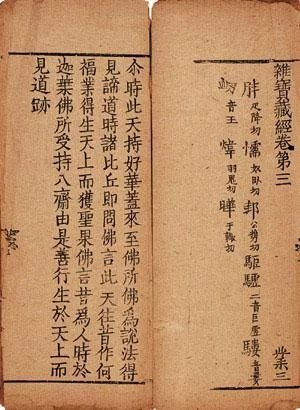 雜寶藏經卷第三
疋降切 懦奴臥切 駏驉二音巨虛
音王 煒羽鬼切 曄于輒切
尒時此天持好華蓋來至佛所佛為說法得
見諦道時諸比丘即問佛言此天往昔作何
福業得生天上而獲聖果佛言昔為人時於
迦葉佛所受持八齋由是善行生於天上而
見道跡